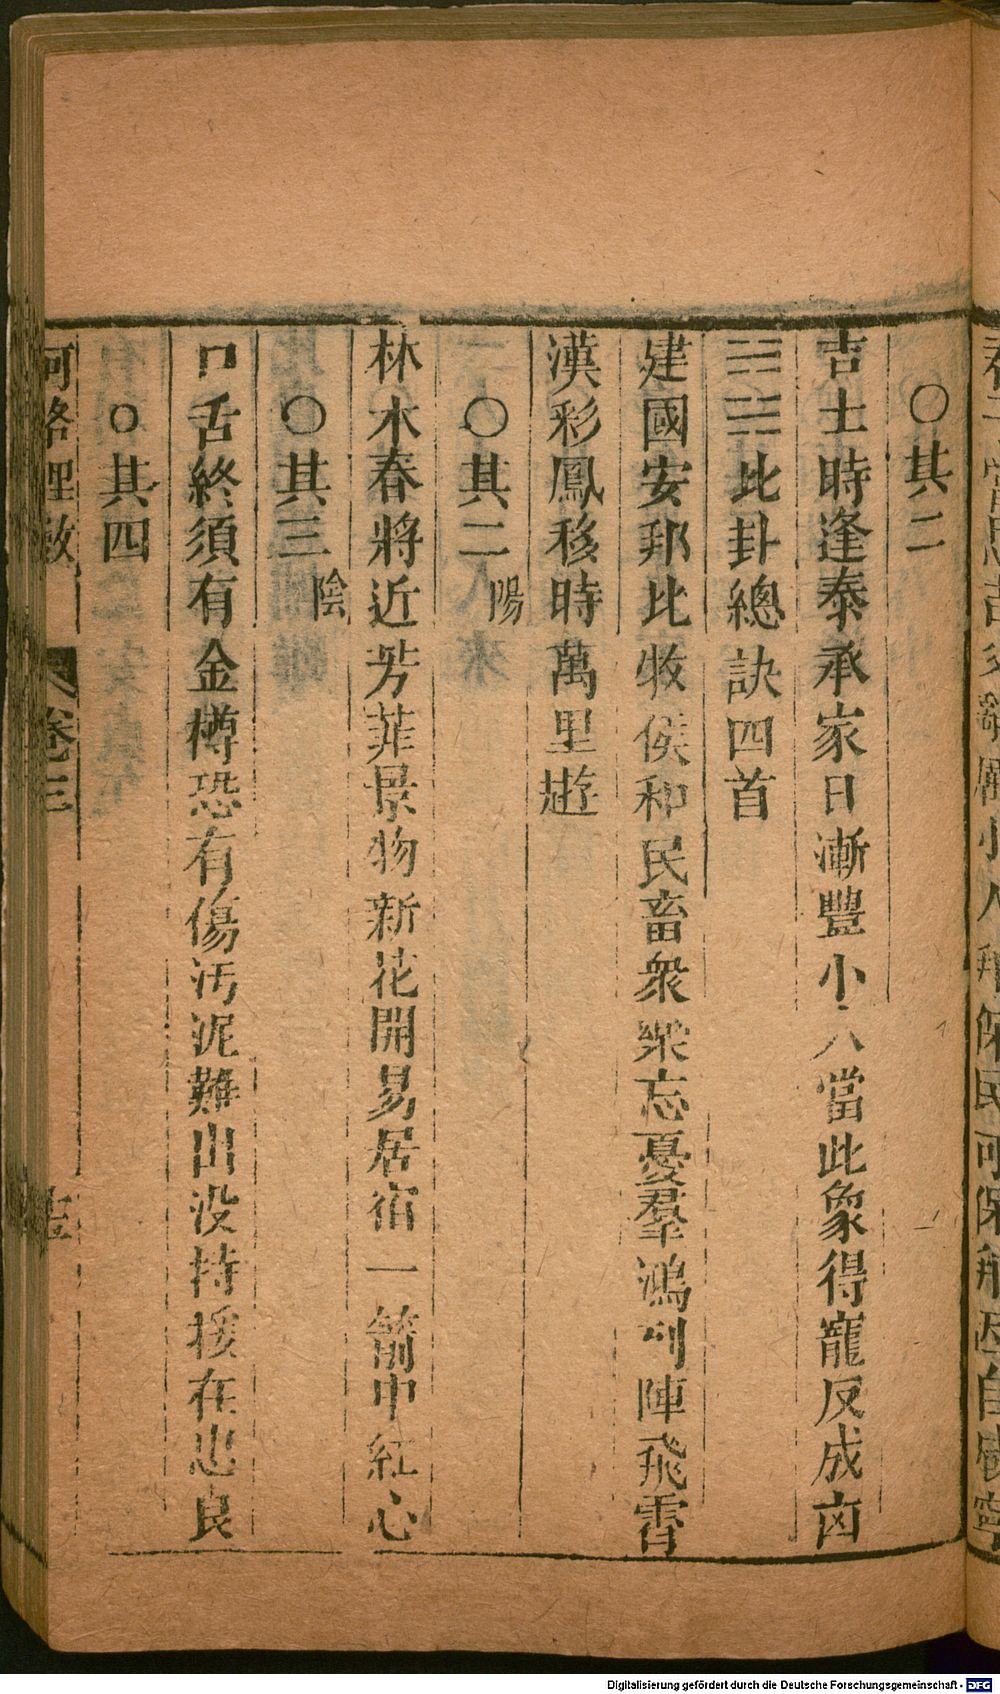 ○其二
吉士時逢泰承家日漸豐小人當此象得寵反成凶
䷇比卦總訣四首
建國安邦比牧侯和民畜衆樂忘憂羣鴻列陣飛霄
漢彩鳳移時萬里遊
○其二陽
林木春將近芳菲景物新花開易居宿一箭中紅心
○其三陰
口舌終須有金樽恐有傷汚泥難出没持援在忠良
○其四
河洛理數 卷三
Digitalisierung gefördert durch die Deutsche Forschungsgemeinschaft - DFG